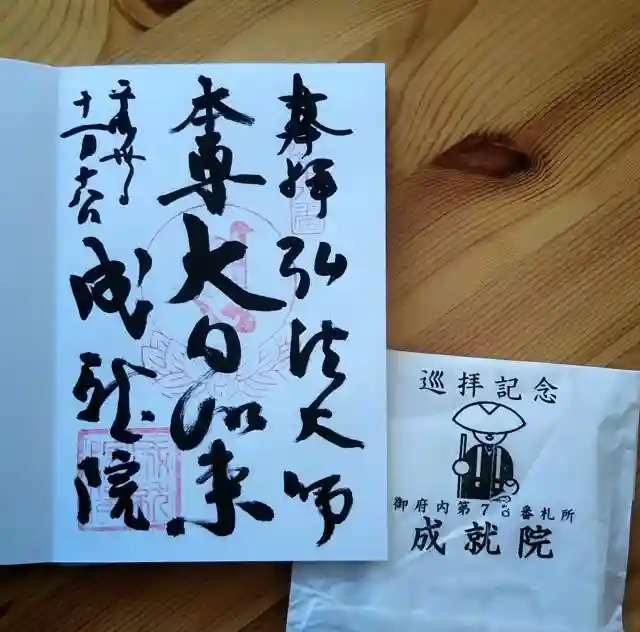 奉拝 弘法大師
本尊 大日如来
平成卅年
十一月十六日
成就院
巡拝記念
御府内第78番札所
成就院